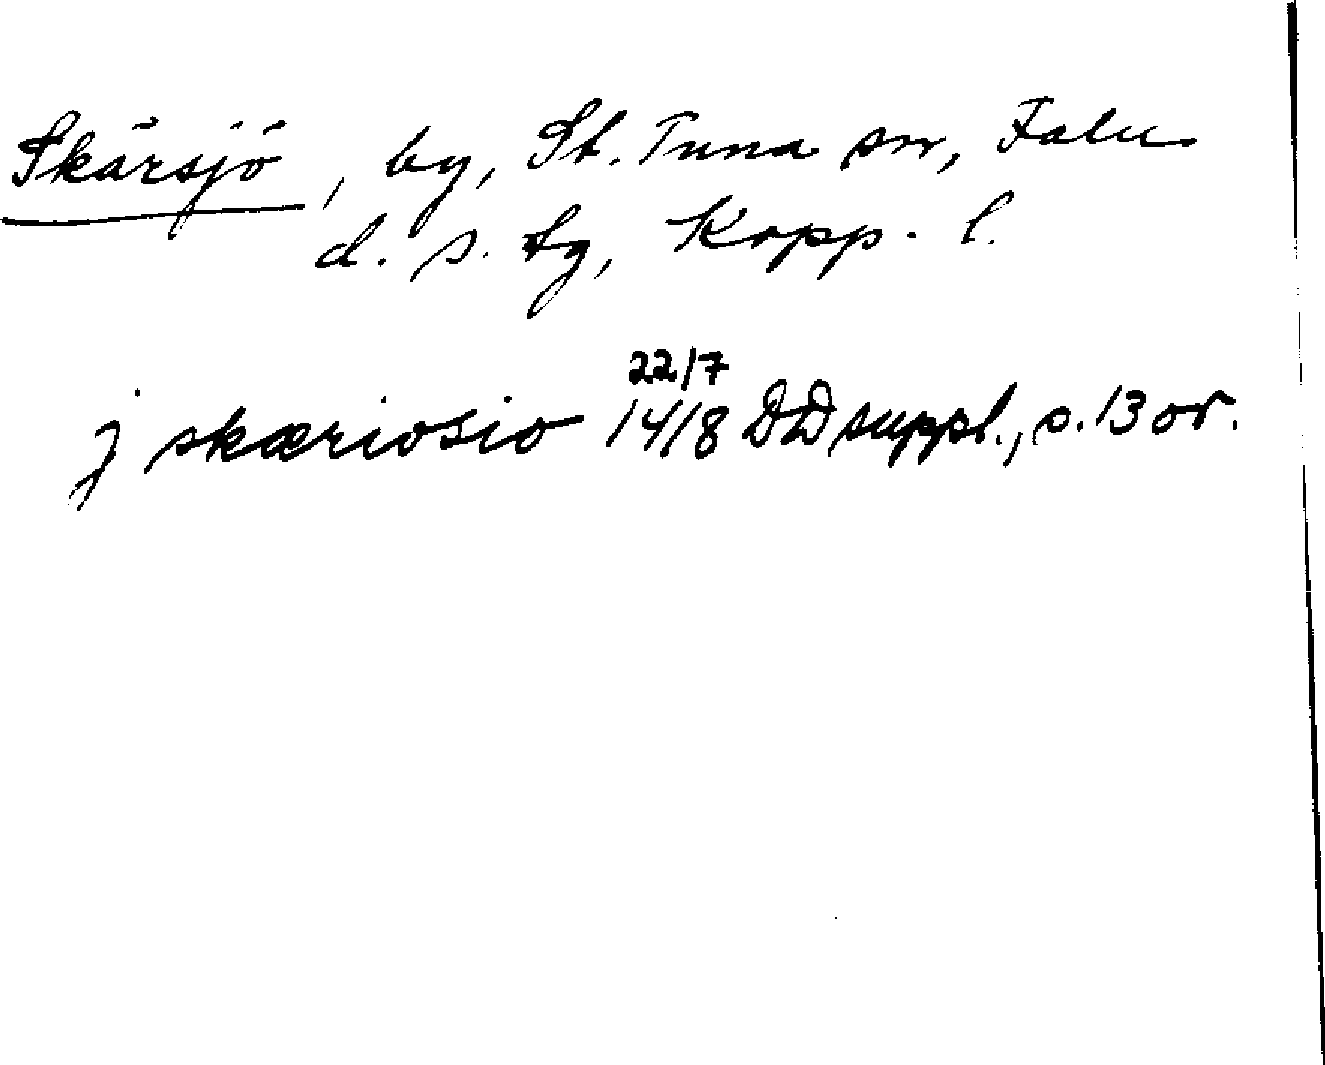 Skärsjö, by, St. Tuna sn, Falu
d. s. tg, Kopp. l.
22/7
j skæriosio 1418 DD suppl., s. 13 or.